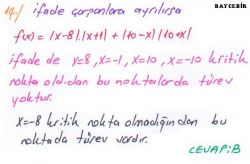 BAYCEBİR
14-) ifade çarpanlara ayrılırsa
f(x) = |x-8|.|x+1| + |10-x||10+x|
ifade de x=8, x=-1, x=10, x=-10 kritik
nokta olduğundan bu noktalarda türev
yoktur.
x=-8 kritik nokta olmadığından bu
noktada türev vardır.
CEVAP:B